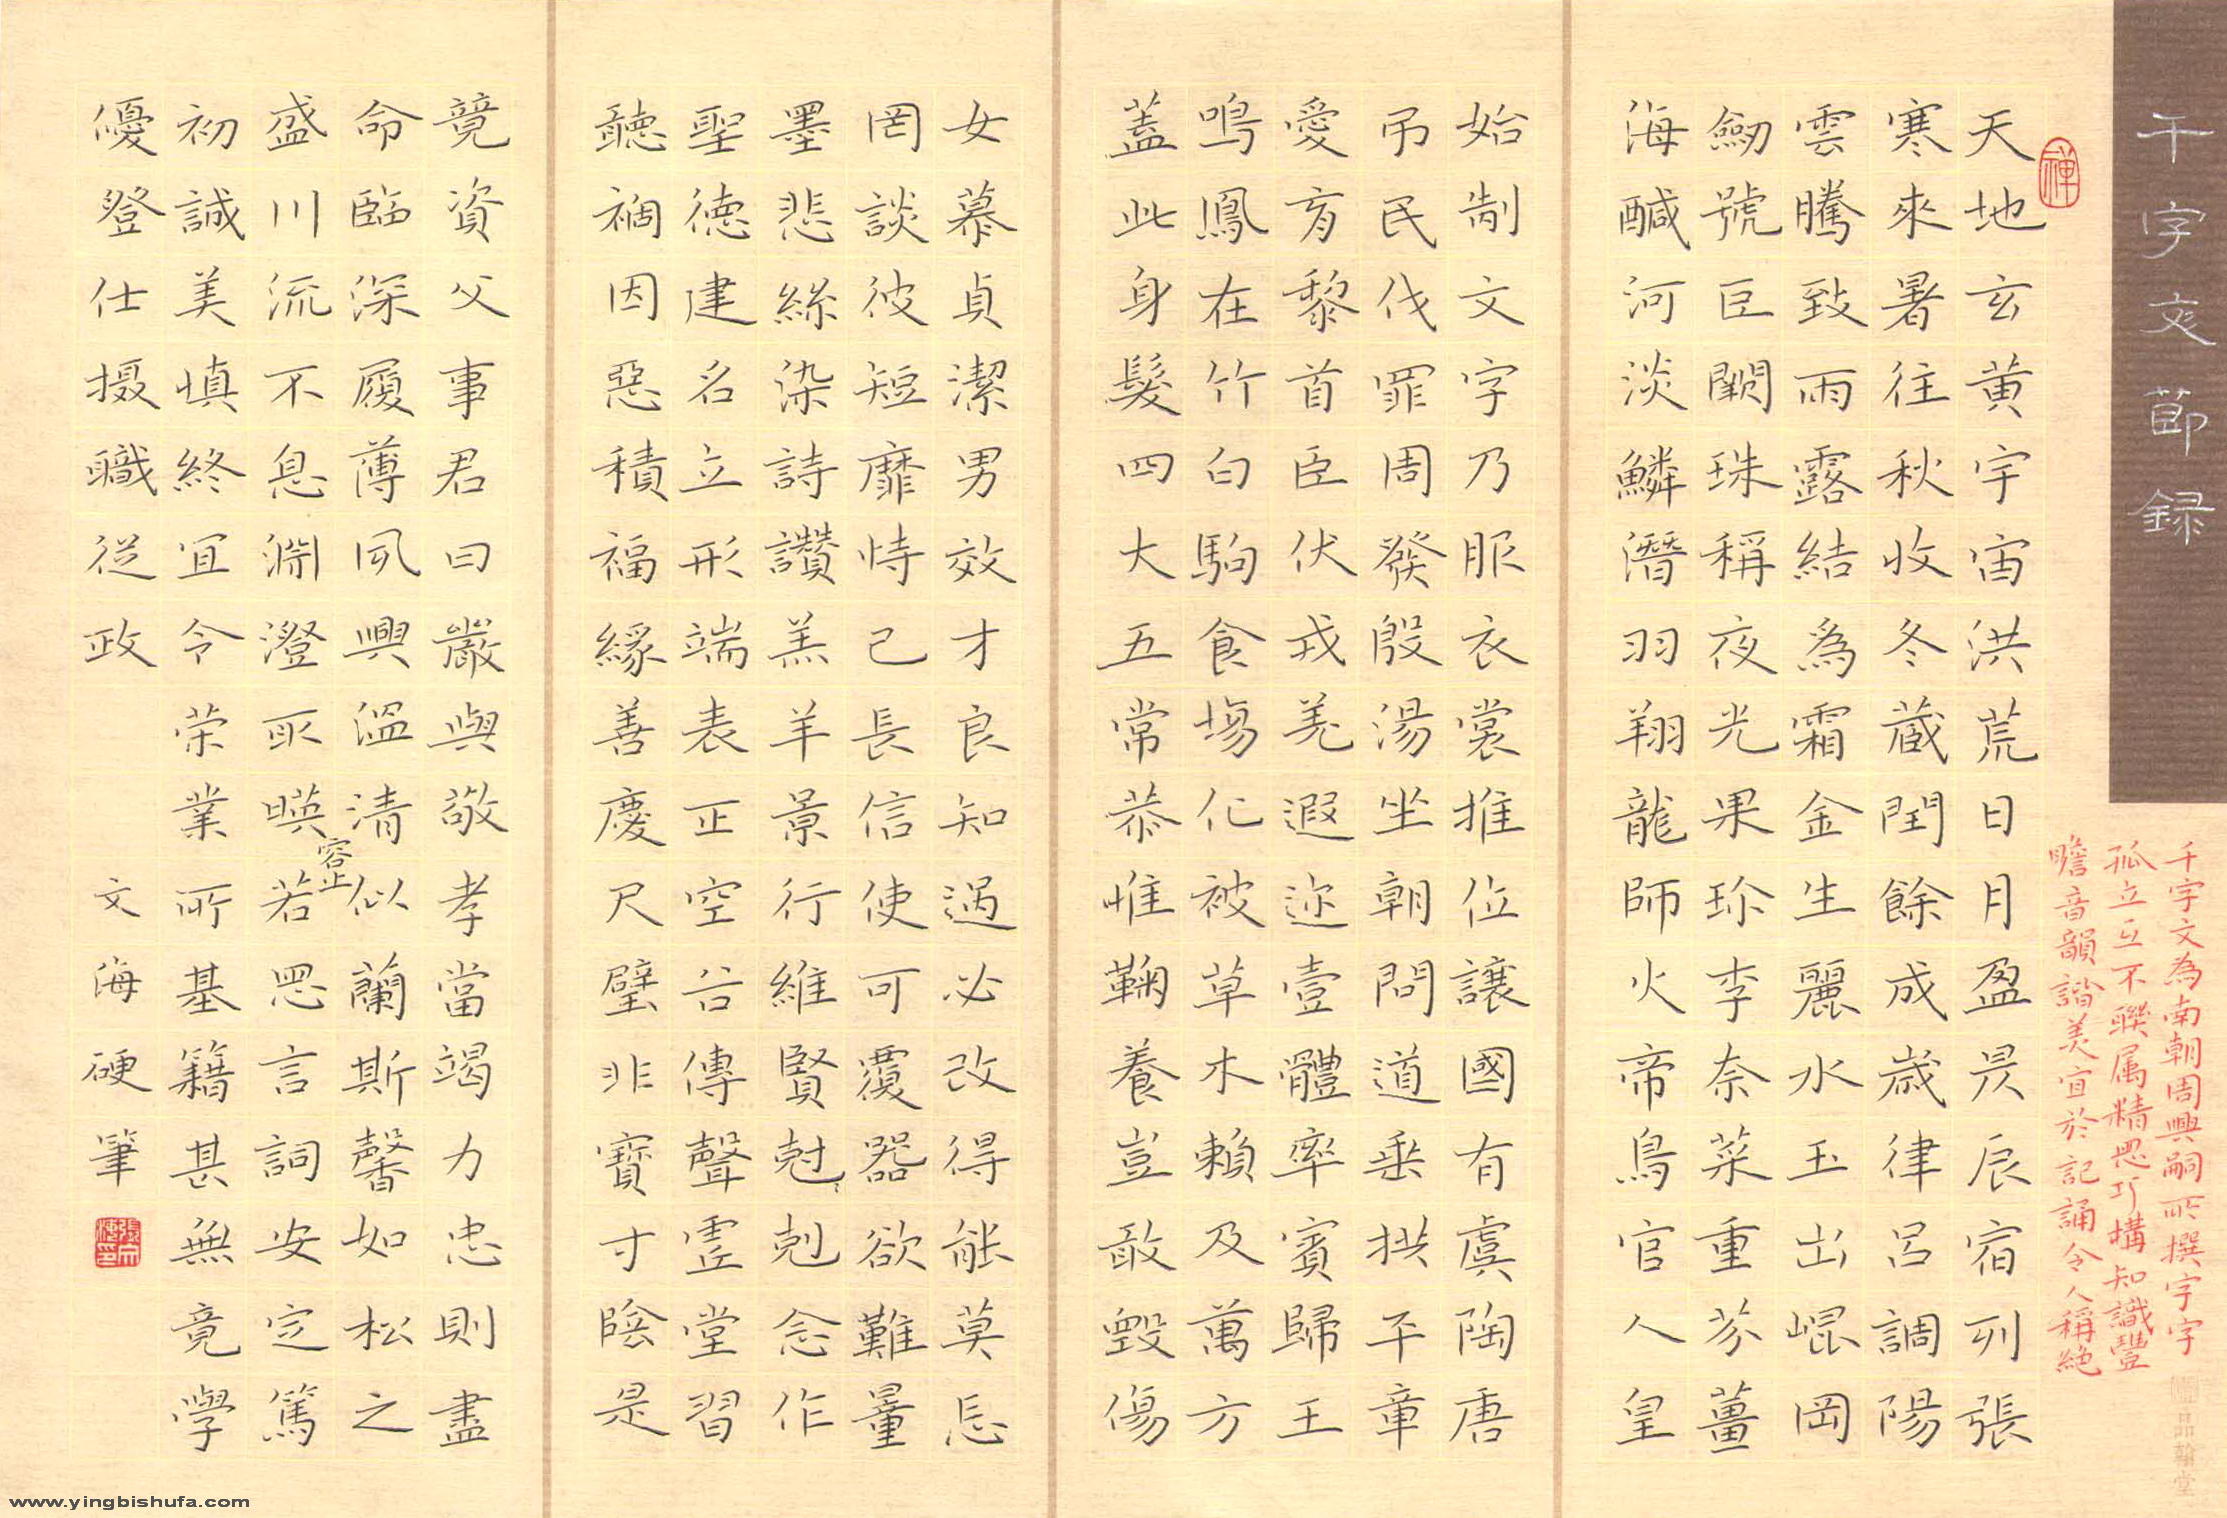 千字文節録
千字文為南朝周興嗣所撰字字
孤立互不聯属精思巧構知識豐
瞻音韻諧美宜於記誦令人稱絶
禪
天地玄黄宇宙洪荒日月盈昃辰宿列張
寒來暑往秋收冬蔵閏餘成歲律呂調陽
雲騰致雨露結為霜金生麗水玉出崐岡
劒號巨闕珠稱夜光果珍李奈菜重芥薑
海醎河淡鱗潛羽翔龍師火帝鳥官人皇
始制文字乃服衣裳推位讓國有虞陶唐
吊民伐罪周發殷湯坐朝問道垂拱平章
愛育黎首臣伏戎羌遐迩壹體率賓歸王
鳴鳳在竹白駒食場化被草木賴及萬方
蓋此身髮四大五常恭惟鞠養豈敢毀傷
女慕貞潔男效才良知過必改得能莫忘
罔談彼短靡恃己長信使可覆器欲難量
墨悲絲染詩讚羔羊景行維賢尅剋念作
聖德建名立形端表正空谷傳聲虛堂習
聽禍因惡積福緣善慶尺璧非寶寸陰是
竟資父事君曰嚴與敬孝當竭力忠則盡
命臨深履薄夙興溫清似蘭斯馨如松之
盛川流不息淵澄取暎容止若思言詞安定篤
初誠美慎終宜令荣業所基籍甚無竟學
優登仕摄職從政
文海硬筆
www.yingbishufa.com